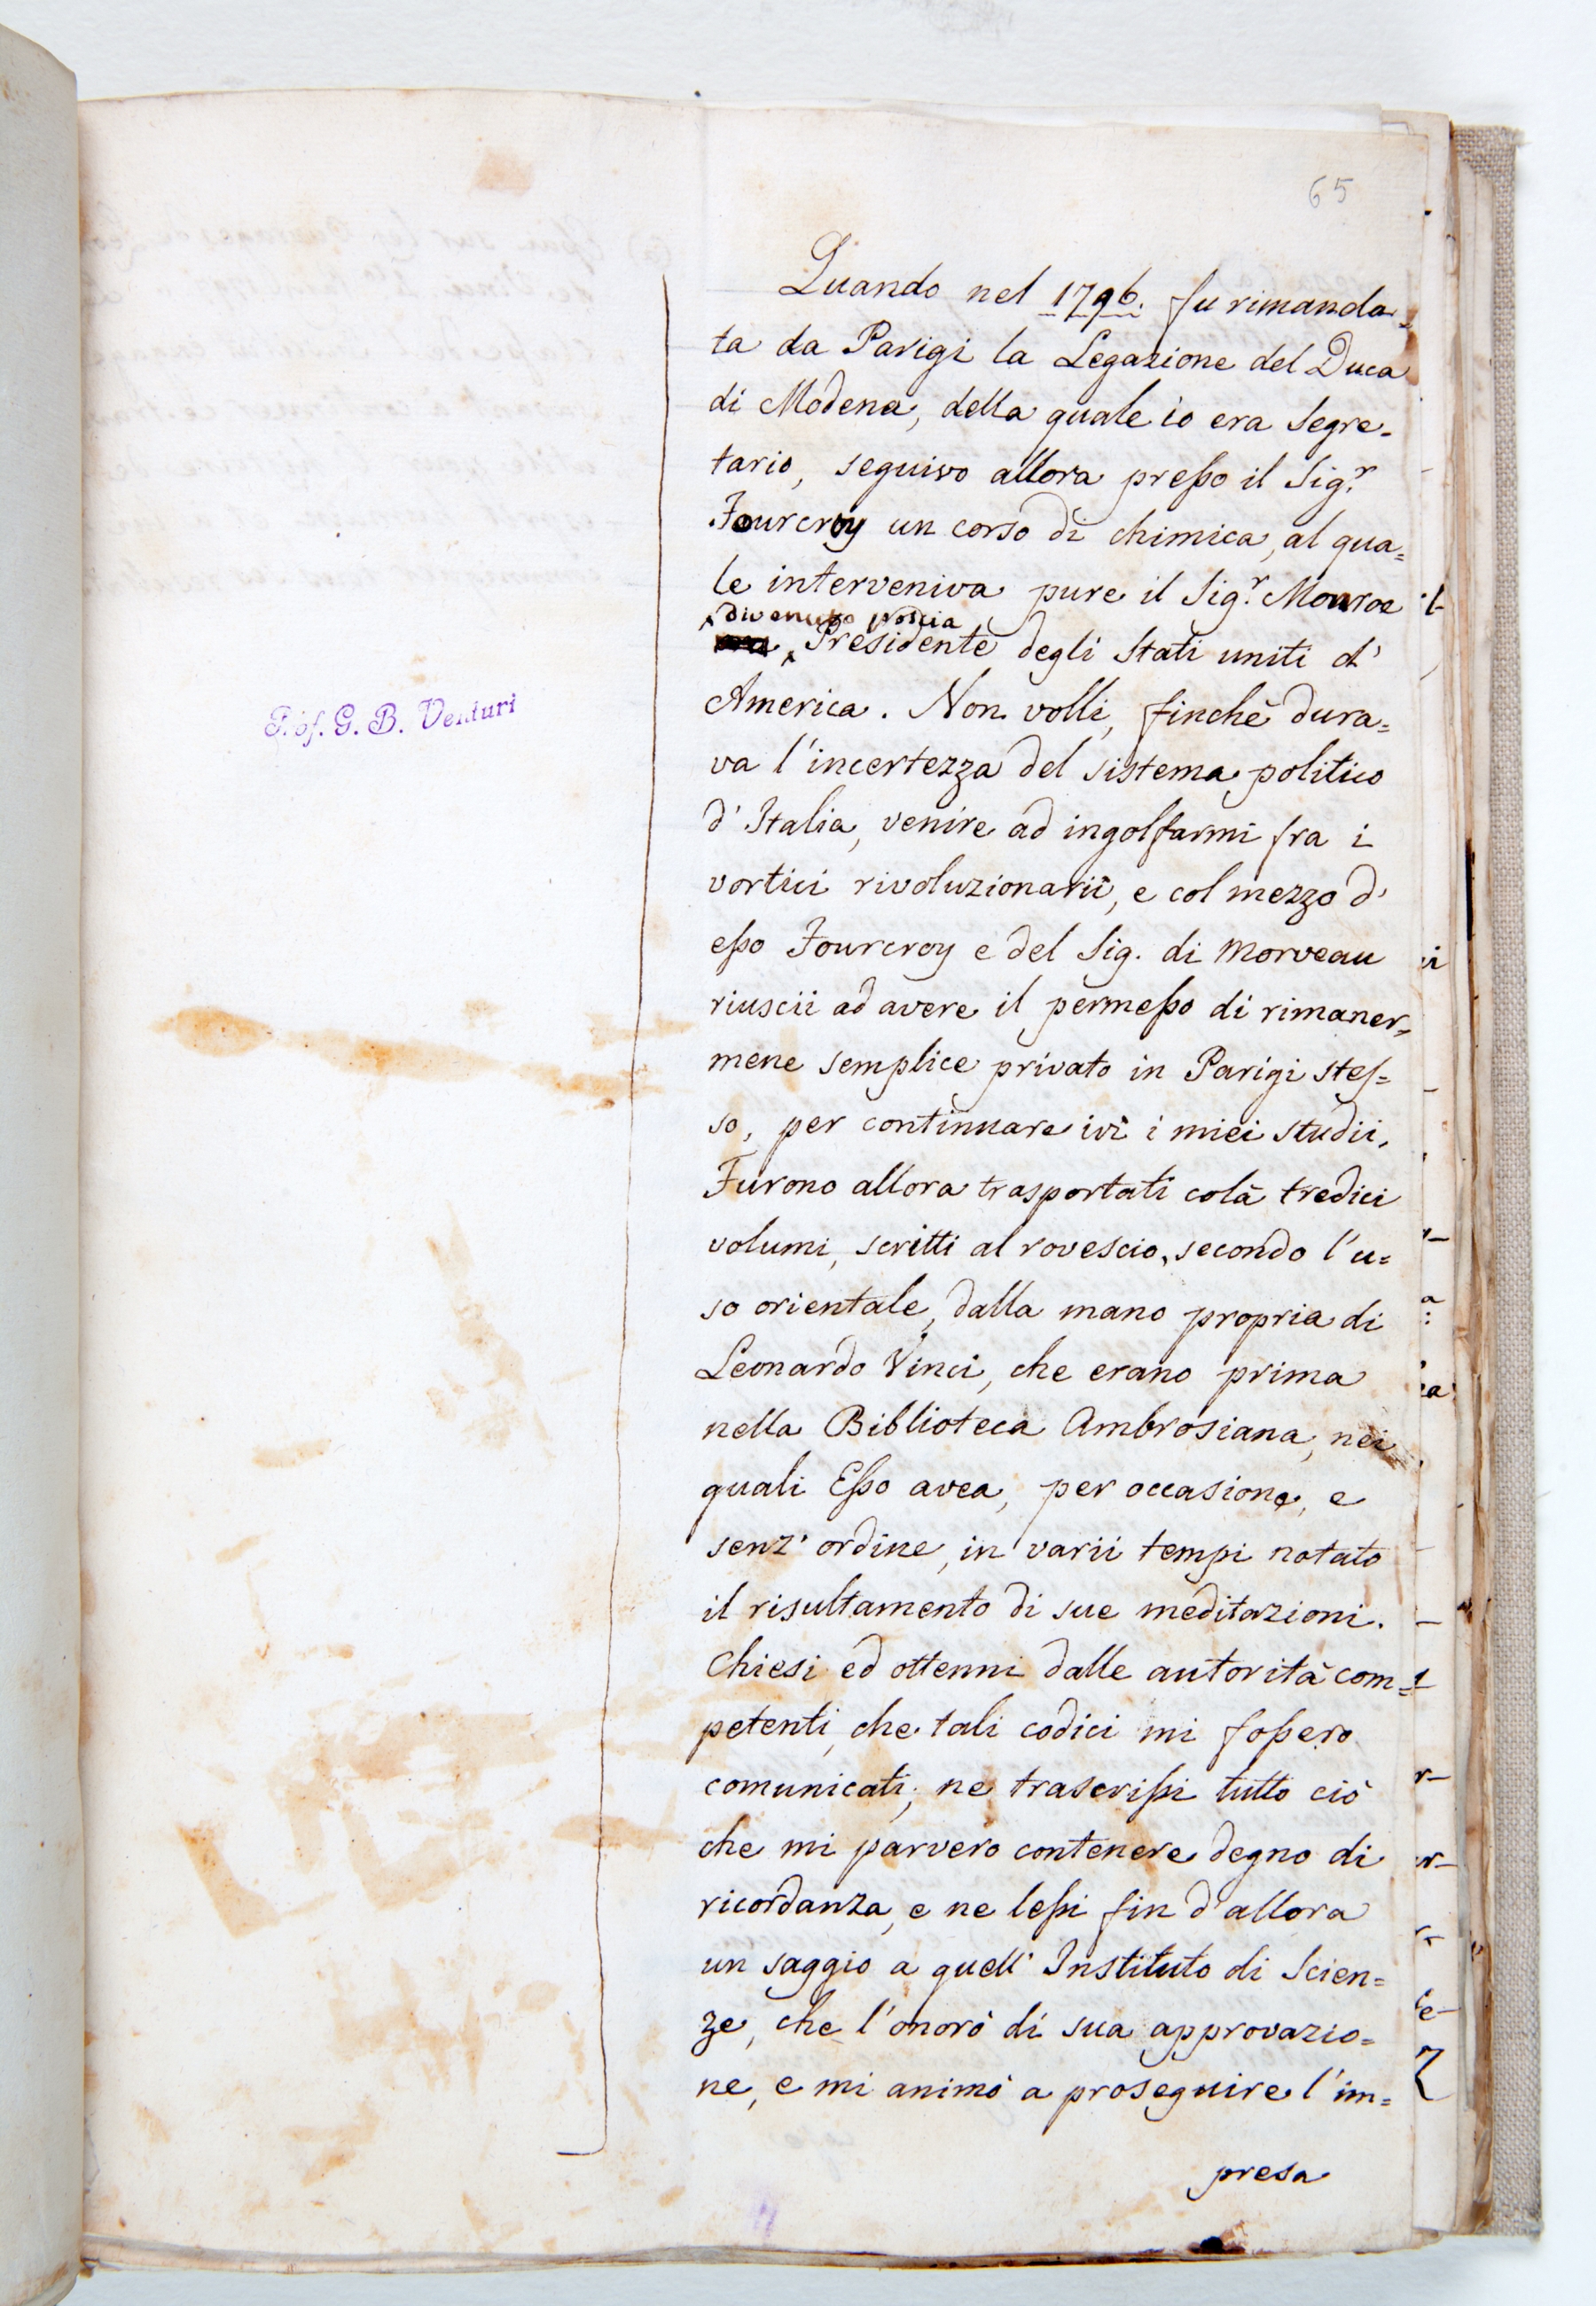 65
Quando nel 1796. fu rimanda=
ta da Parigi la Legazione del Duca
di Modena, della quale io era Segre=
tario, seguivo allora preſso il Sig.r
Fourcroy un corso di chimica, al qua=
le interveniva pure il Sig.r Monroe
divenuto poscia
Presidente degli Stati uniti d'
America. Non volli, finchè dura=
va l'incertezza del sistema politico
d'Italia, venire ad ingolfarmi fra i
vortici rivoluzionarii, e col mezzo d'
eſso Fourcroy e del Sig. di Morveau
riuscii ad avere il permeſso di rimaner=
mene semplice privato in Parigi steſ=
so, per continuare ivi i miei studii.
Furono allora trasportati colà tredici
volumi, scritti al rovescio, secondo l'u=
so orientale, dalla mano propria di
Leonardo Vinci, che erano prima
nella Biblioteca Ambrosiana, nei
quali Eſso avea, per occasione, e
senz'ordine, in varii tempi notato
il risultamento di sue meditazioni.
Chiesi ed ottenni dalle autorità com=
petenti, che tali codici mi foſsero
comunicati; ne trascriſsi tutto ciò
che mi parvero contenere degno di
ricordanza, e ne leſsi fin d'allora
un saggio a quell'Instituto di Scien=
ze, che l'onorò di sua approvazio=
ne, e mi animò a proseguire l'im=
presa
Prof. G. B. Venturi